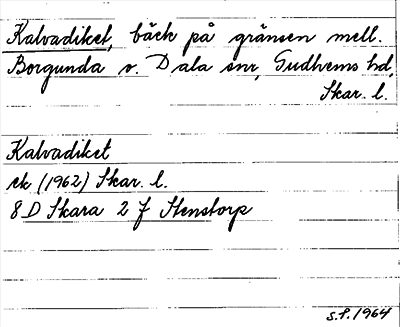 Kalvadiket, bäck på gränsen mell.
Borgunda o. Dala snr, Gudhems hd,
Skar. l.
Kalvadiket
ek (1962) Skar. l.
8 D Skara 2 f Stenstorp
S.P. 1964